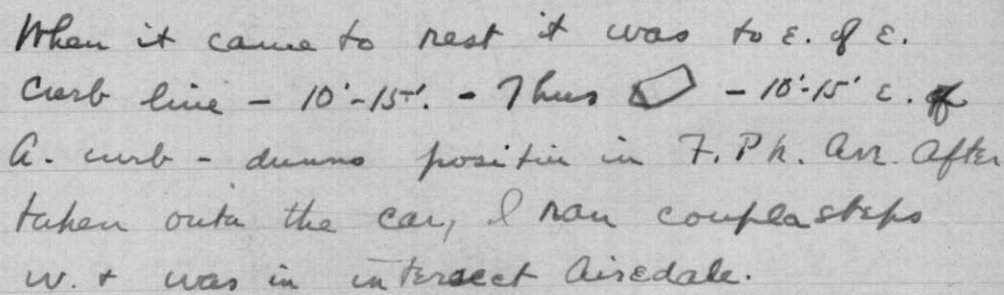 When it came to rest it was to E. of E.
Curb line - 10'-15'. - Thus - 10'-15' E. of
A. curb - dunno position in F. Ph. Ave. After
taken outa the car, I ran coupla steps
w. + was in intersect Airedale.